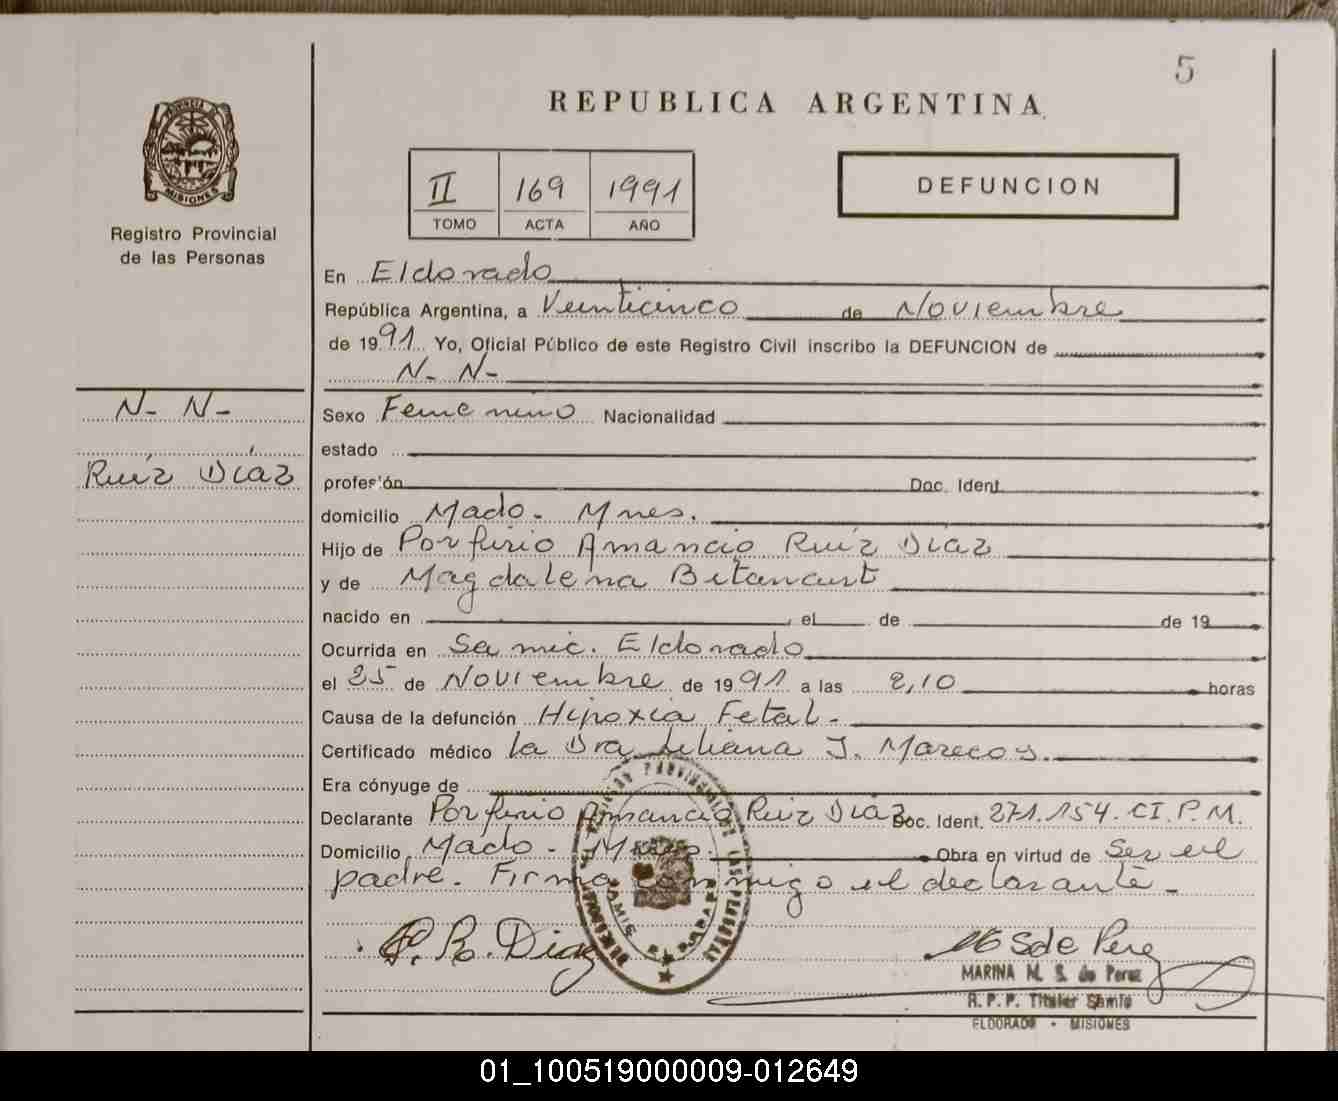 5
REPUBLICA ARGENTINA
PROVINCIA DE
MISIONES
Registro Provincial
de las Personas
II 169 1991
TOMO ACTA AÑO
DEFUNCION
En Eldorado
República Argentina, a Veinticinco de Noviembre
de 1991 Yo, Oficial Público de este Registro Civil inscribo la DEFUNCION de
N- N-
N- N-
Ruíz Díaz
Sexo Femenino Nacionalidad
estado
profesión Doc. Ident.
domicilio Mado- Mnes.
Hijo de Porfirio Amancio Ruíz Díaz
y de Magdalena Betancurt
nacido en el de de 19
Ocurrida en Samic. Eldorado
el 25 de Noviembre de 1991 a las 2,10 horas
Causa de la defunción Hipoxia Fetal-
Certificado médico la Dra Liliana J. Marecos.
Era cónyuge de
Declarante Porfirio Amancio Ruiz Díaz Doc. Ident. 271.154. CI.P.M.
Domicilio Mado- Mnes. Obra en virtud de Ser el
padre. Firma conmigo el declarante-
P. R. Diaz
MS de Perez
MARINA M. S. de Perez
R. P. P. Titular Samic
ELDORADO - MISIONES
01_100519000009-012649